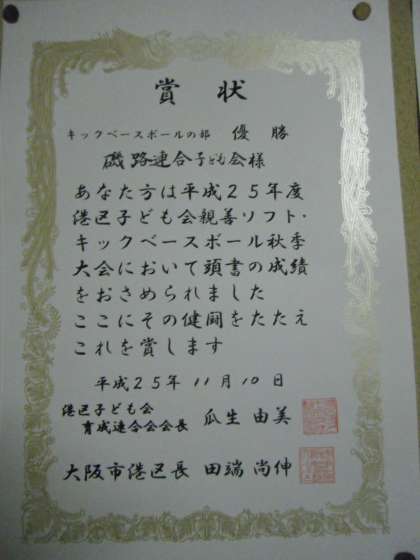 賞状
キックベースボールの部 優勝
磯路連合子ども会様
あなた方は平成25年度
港区子ども会親善ソフト・
キックベースボール秋季
大会において頭書の成績
をおさめられました
ここにその健闘をたたえ
これを賞します
平成25年 11月10日
港区子ども会
育成連合会会長 瓜生 由美
大阪市港区長 田端 尚伸